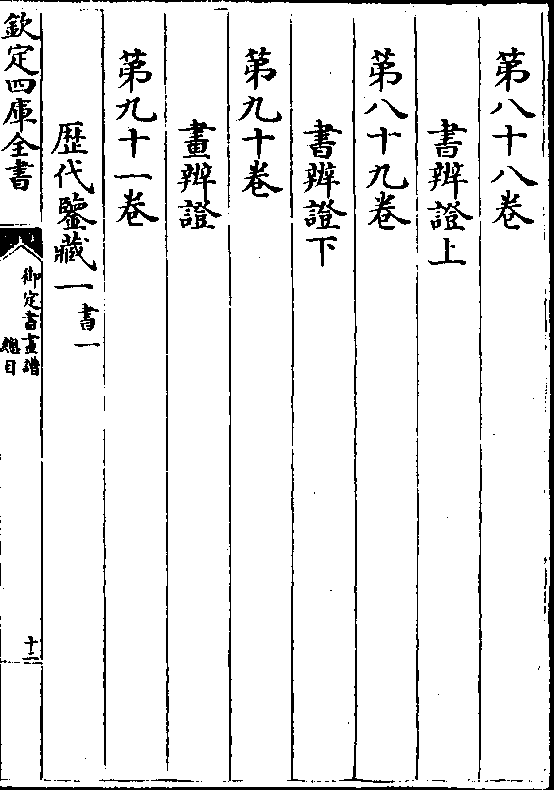 第八十八卷
書辨證上
第八十九卷
書辨證下
第九十卷
畫辨證
第九十一卷
歴代鑒藏一書一
欽定四庫全書
御定書畫譜
總目
十二